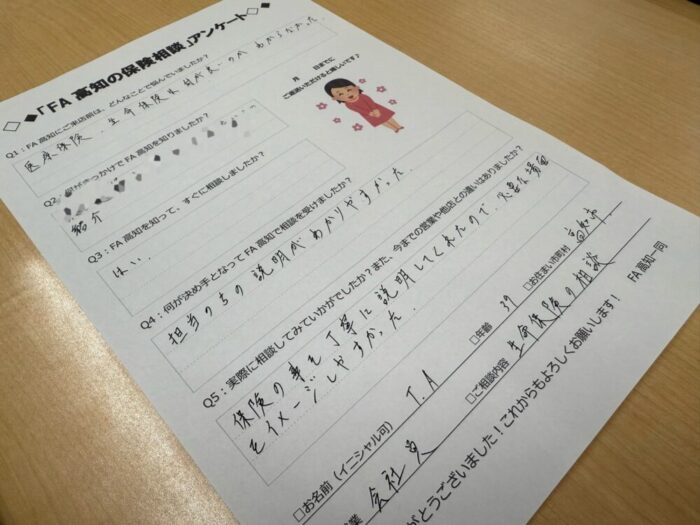 ◇◆「FA高知の保険相談」アンケート◆◇
Q1：FA高知にご来店前は、どんなことで悩んでいましたか？
医療保険、生命保険は何が良いのかわからなかった
月　　日までに
ご返送いただけると嬉しいです♪
がきっかけでFA高知を知りましたか？
紹介
Q3：FA高知を知って、すぐに相談しましたか？
はい.
Q4：何が決め手となってFA高知で相談を受けましたか？
担当の方の説明がわかりやすかった.
Q5：実際に相談してみていかがでしたか？また、今までの営業や他店との違いはありましたか？
保険の事を丁寧に説明してくれたので、必要な場面
をイメージしやすかった.
□お名前（イニシャル可） T.A □年齢 39 □お住まい市町村 高知市.
業 会社員 □ご相談内容 生命保険の相談
がとうございました！これからもよろしくお願いします！ FA高知一同